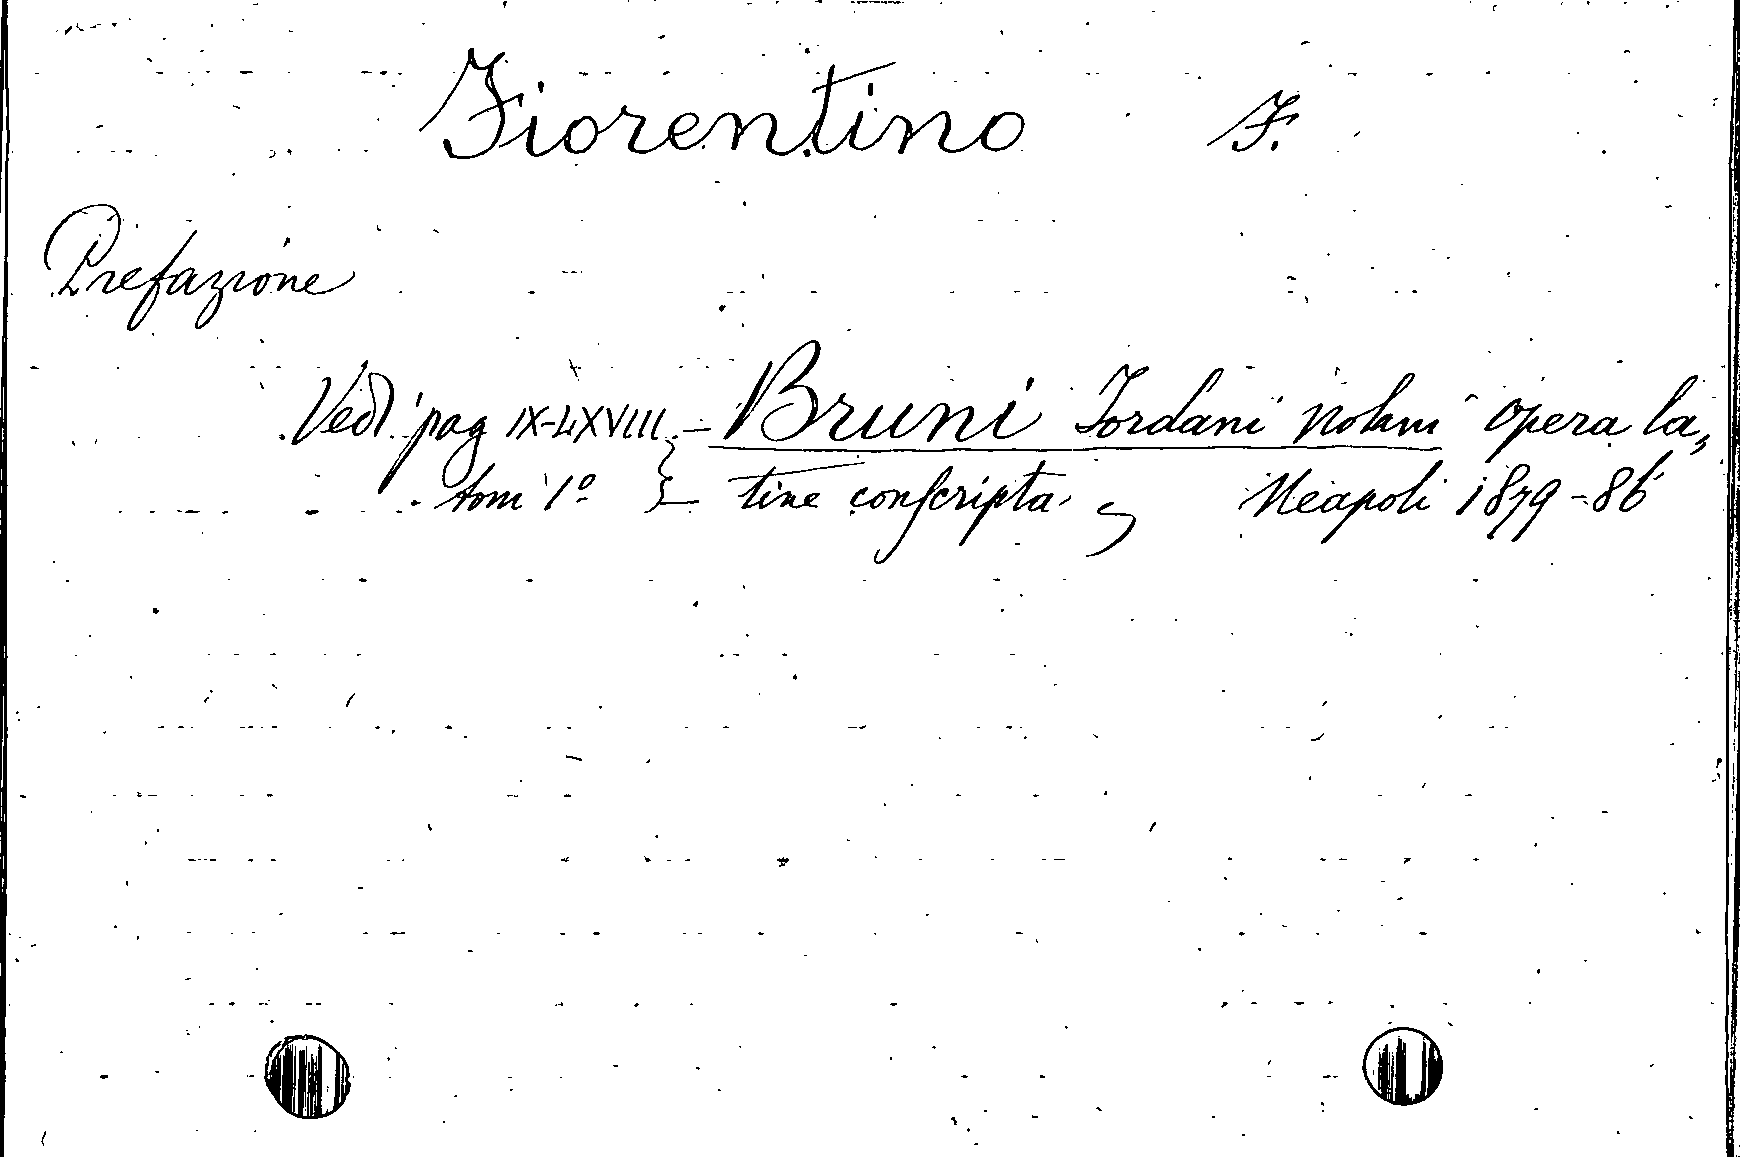 Fiorentino F.
Prefazione
Vedi pag IX-LXVIII - Bruni Jordani Nolani opera la„
tom 1º - tine conscripta Neapoli 1879-86